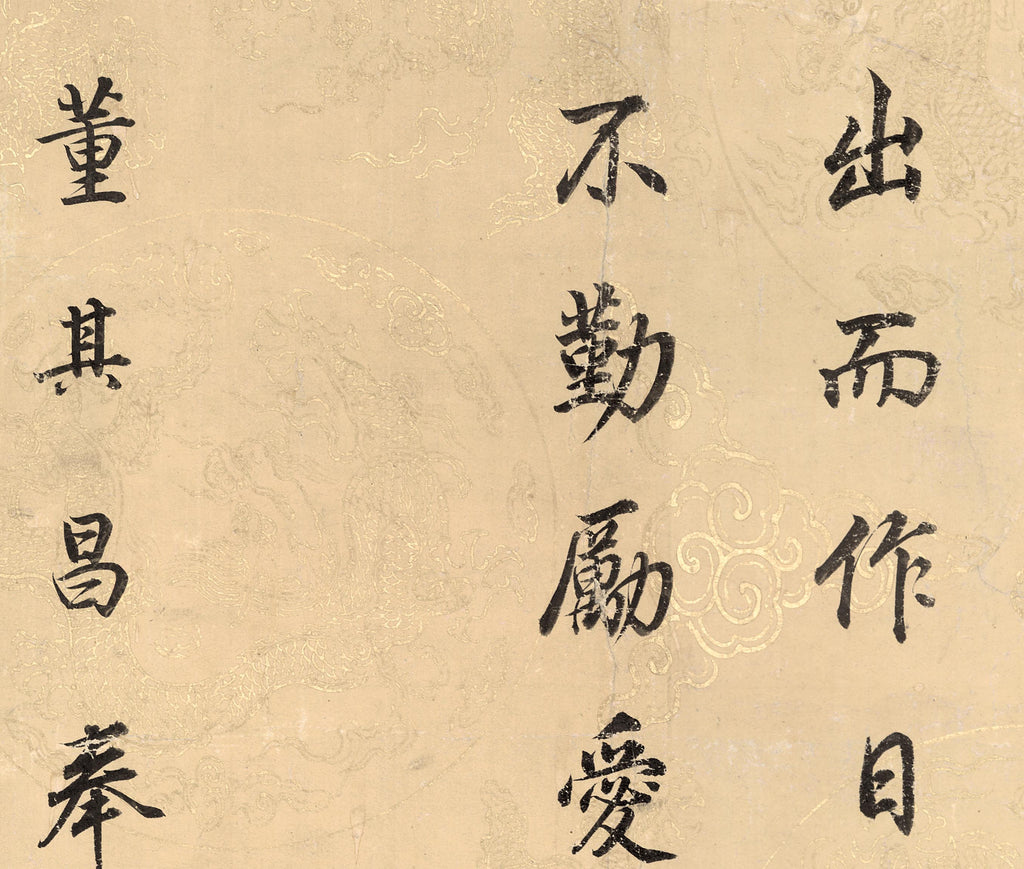 出而作日
不勤勵愛
董其昌奉